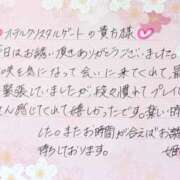 ホタルクリスタルゲートの貴方様♡
日はお誘い頂きありがとうございました。
咲を気になって会いに来てくれて、最
緊張していましたが段々慣れてプレイ
さん感じてくれて嬉しかったです。暑い時
したのまたお時間が合えばお
待ちしております。